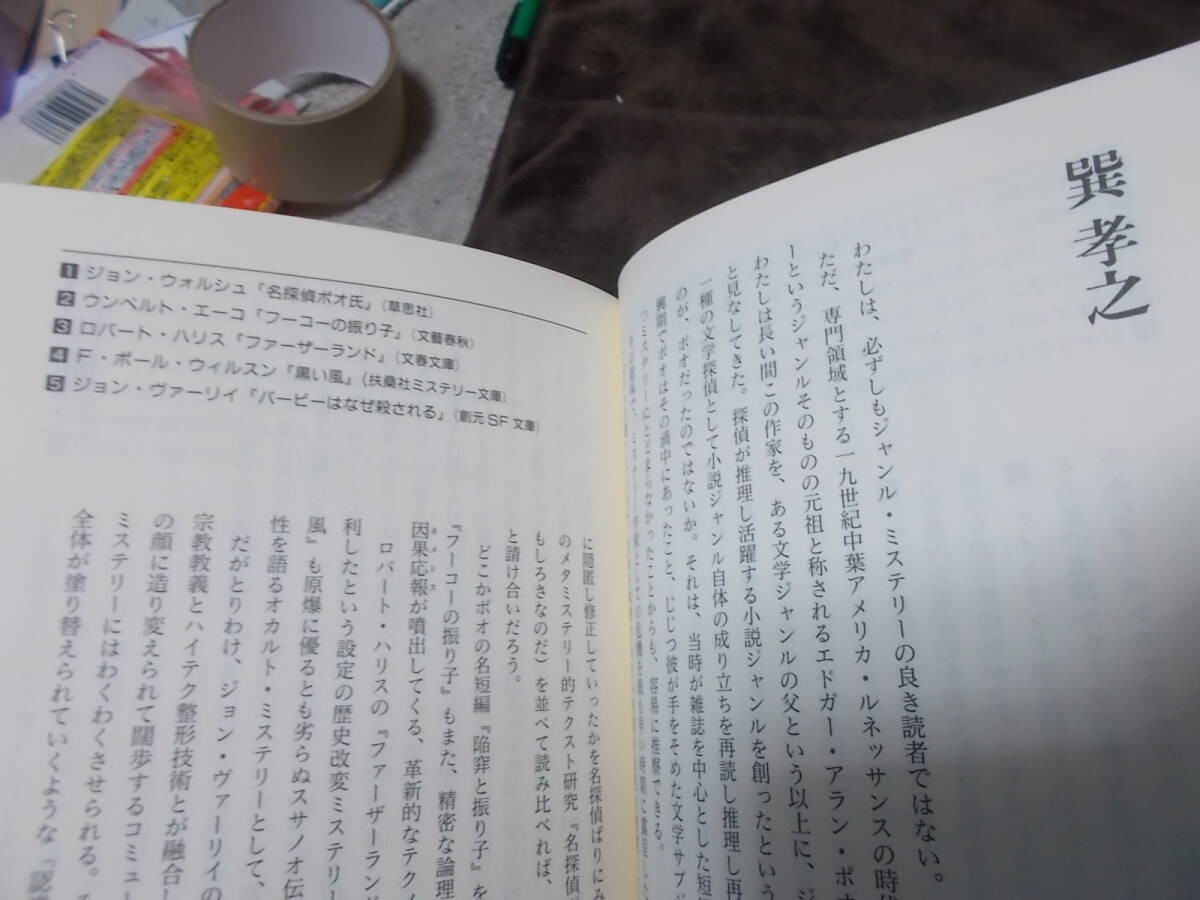 巽 孝之
わたしは、必ずしもジャンル・ミステリーの良き読者ではない。
ただ、専門領域とする一九世紀中葉アメリカ・ルネッサンスの時代
ーというジャンルそのものの元祖と称されるエドガー・アラン・ポオ
わたしは長い間この作家を、ある文学ジャンルの父という以上に、ジ
と見なしてきた。探偵が推理し活躍する小説ジャンルを創ったという
一種の文学探偵として小説ジャンル自体の成り立ちを再読し推理し再
のが、ポオだったのではないか。それは、当時が雑誌を中心とした短
興期でポオはその渦中にあったこと、じじつ彼が手をそめた文学サブジ
つミステリーにとどまらなかったことからも、容易に推察できる。
1 ジョン・ウォルシュ「名探偵ポオ氏」(草思社)
2 ウンベルト・エーコ「フーコーの振り子」(文藝春秋)
3 ロバート・ハリス「ファーザーランド」(文春文庫)
4 F・ポール・ウィルスン「黒い風」(扶桑社ミステリー文庫)
5 ジョン・ヴァーリイ「バービーはなぜ殺される」(創元SF文庫)
に隠匿し修正していったかを名探偵ばりにみ
のメタミステリー的テクスト研究『名探偵
もしろさなのだ)を並べて読み比べれば、
と請け合いだろう。
どこかポオの名短編『陥穽と振り子』を
『フーコーの振り子』もまた、精密な論理
因果応報が噴出してくる、革新的なテクノ
ネメシス
ロバート・ハリスの『ファーザーラン
利したという設定の歴史改変ミステリー
風』も原爆に優るとも劣らぬスサノオ伝
性を語るオカルト・ミステリーとして、
だがとりわけ、ジョン・ヴァーリイの
宗教教義とハイテク整形技術とが融合し
の顔に造り変えられて闊歩するコミュー
ミステリーにはわくわくさせられる。そ
全体が塗り替えられていくような「認